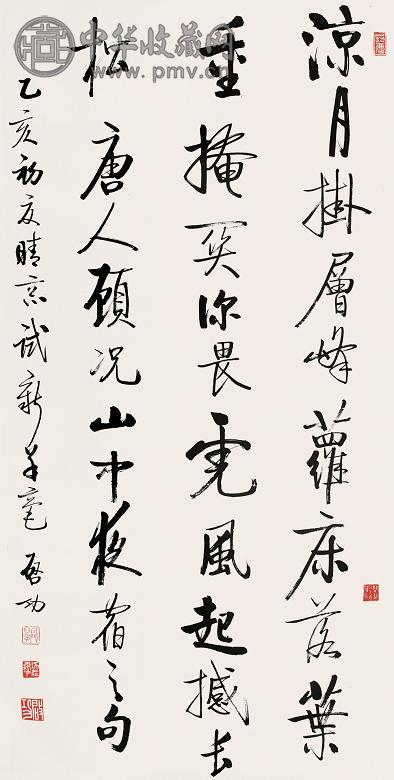 中华收藏网
www.pmv.cn
涼月掛層峰蘿床落葉
重掩關深畏虎風起撼長
松唐人顧况山中夜宿之句
乙亥初夏晴窗試新羊毫 啓功